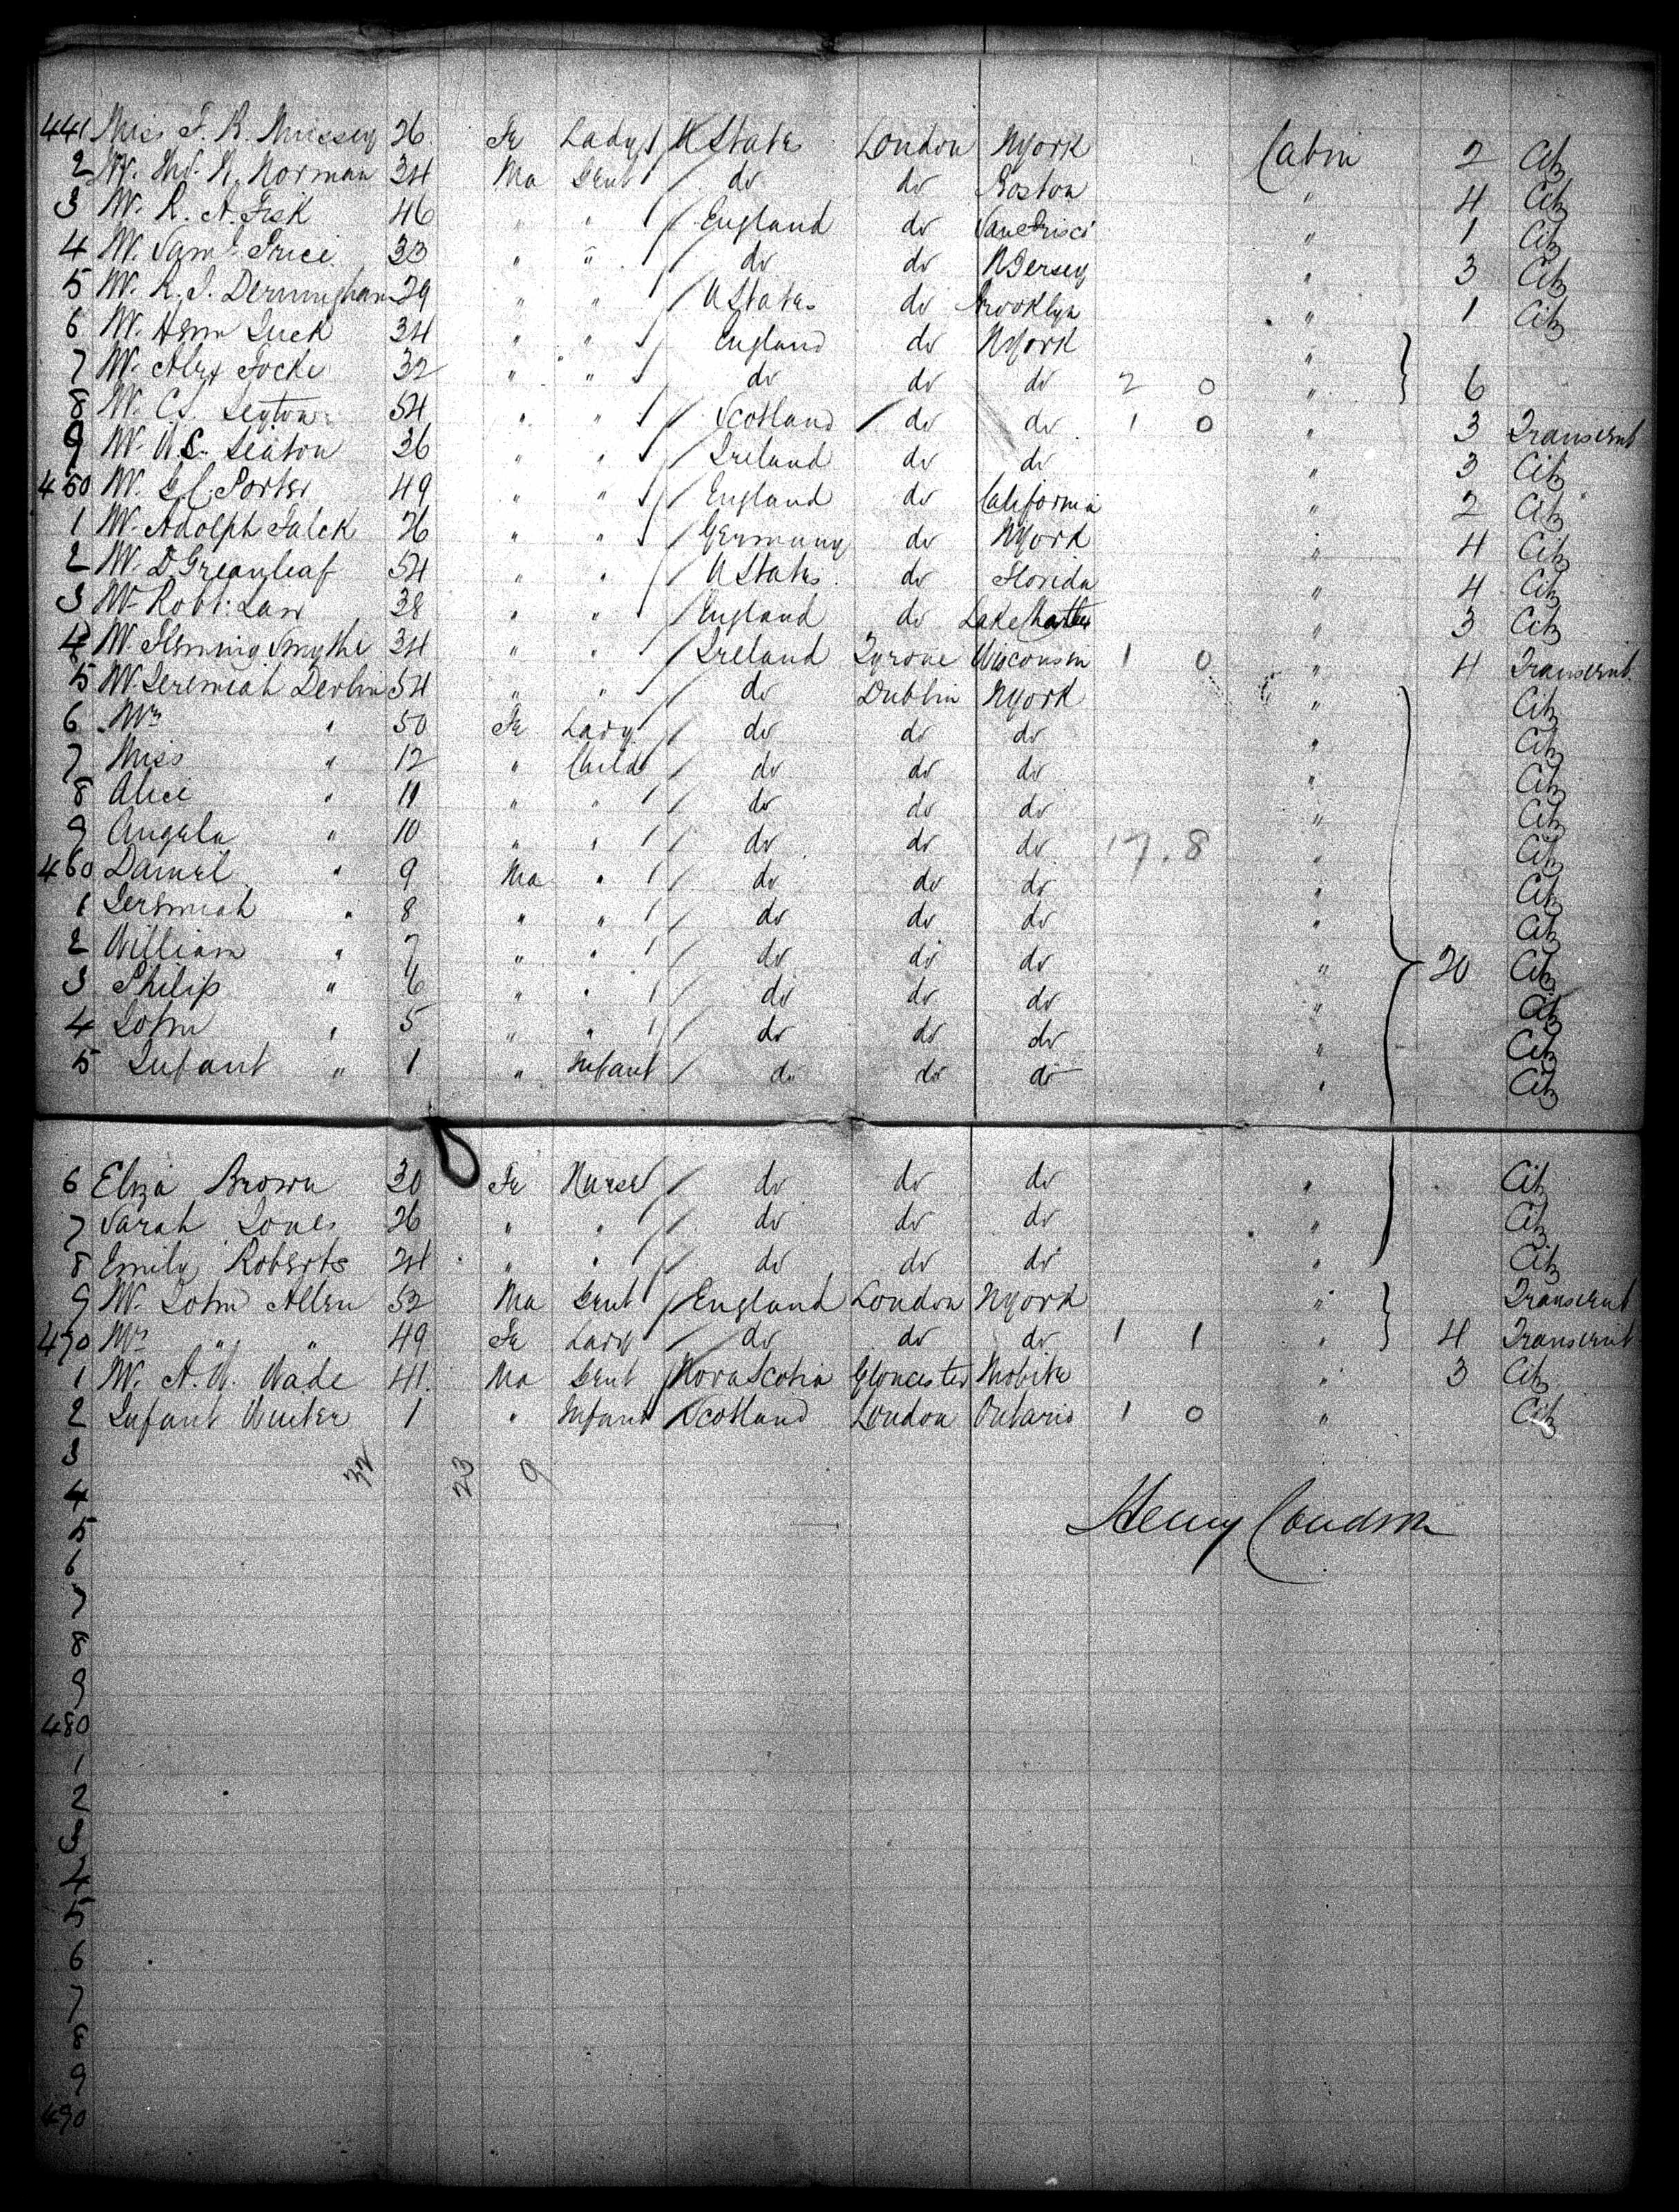 441 Miss F. B. Mussey 26 Fe Lady U States London NYork Cabin 2 Citz
2 Mr. Thos. N. Norman 34 Ma Gent do do Boston " 4 Citz
3 Mr. R. A. Fisk 46 " " England do San Frisco " 1 Citz
4 Mr. Saml. Price 33 " " do do N Jersey " 3 Citz
5 Mr. R. J. Dermingham 29 " " U States do Brooklyn " 1 Citz
6 Mr. Henn Luck 34 " " England do NYork "
7 Mr. Alex Focke 32 " " do do do 2 0 " 6
8 Mr. C. S. Seyton 54 " " Scotland do do 1 0 " 3 Transcint
9 Mr. W. S. Seaton 36 " " Ireland do do " 3 Citz
450 Mr. G. C. Porter 49 " " England do California " 2 Citz
1 Mr. Adolph Falck 26 " " Germany do NYork " 4 Citz
2 Mr. D Greenleaf 54 " " U States do Florida " 4 Citz
3 Mr Robt: Law 38 " " England do Lake " 3 Citz
4 Mr. Fleming Smythe 34 " " Ireland Tyrone Wisconsin 1 0 " 4 Transcint
5 Mr Jeremiah Devlin 54 " " do Dublin NYork " Citz
6 Mrs " 50 Fe Lady do do do " Citz
7 Miss " 12 " Child do do do " Citz
8 Alice " 11 " " do do do " Citz
9 Angela " 10 " " do do do 17.8 " Citz
460 Daniel " 9 Ma " do do do " Citz
1 Jeremiah " 8 " " do do do " Citz
2 William " 7 " " do do do " 20 Citz
3 Philip " 6 " " do do do " Citz
4 John " 5 " " do do do " Citz
5 Infant " 1 " Infant do do do " Citz
6 Eliza Brown 30 Fe Nurse do do do " Citz
7 Sarah Jones 26 " " do do do " Citz
8 Emily Roberts 24 " " do do do " Citz
9 Mr. John Allen 52 Ma Gent England London NYork " Transcint
470 Mrs " " 49 Fe Lady do do do 1 1 " 4 Transcint
1 Mr. A. W. Wade 41 Ma Gent Nova Scotia Gloucester Mobile " 3 Citz
2 Infant Winter 1 " Infant Scotland London Ontario 1 0 " Citz
3 32 23 9
4 Henry
5
6
7
8
9
480
1
2
3
4
5
6
7
8
9
490